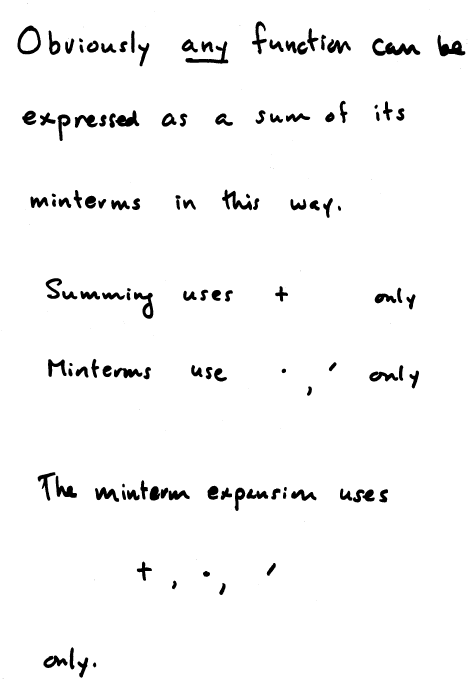 Obviously any function can be
expressed as a sum of its
minterms in this way.
Summing uses + only
Minterms use ·, ′ only
The minterm expansion uses
+, ·, ′
only.